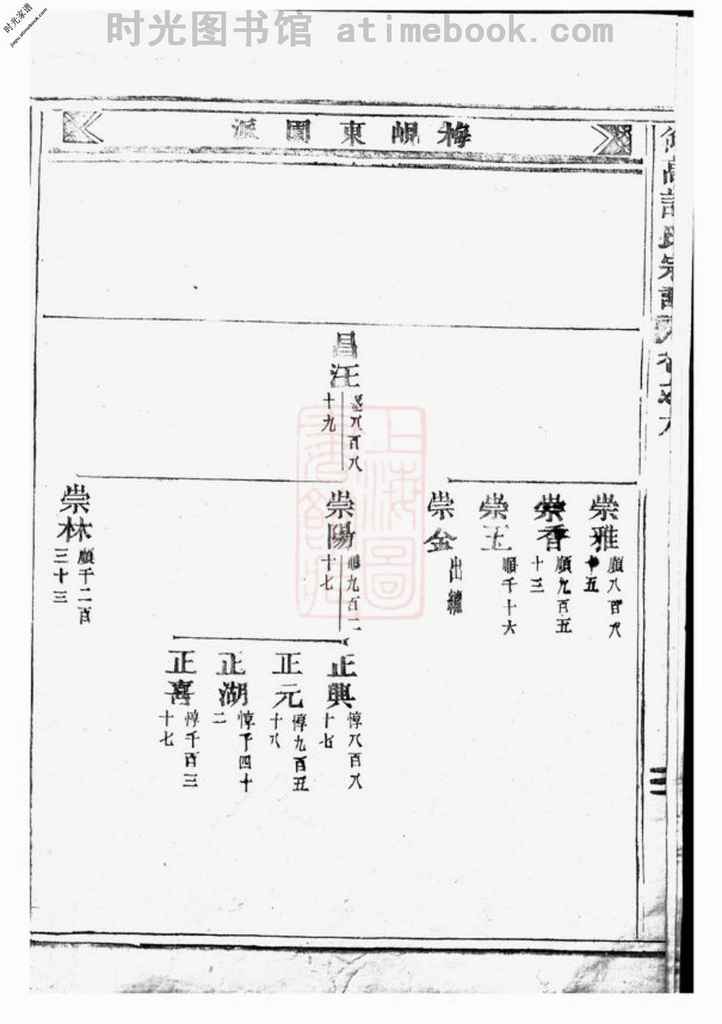 时光图书馆 atimebook.com
时光家谱
jiapu.atimebook.com
梅峴東園派
昌汪
八百八
十九
崇雅
順八百八
十五
崇香
順九百五
十三
崇玉
順千十六
崇金
出繼
崇陽
順九百二
十七
崇林
順千二百
三十三
正興
惇八百八
十七
正元
惇九百五
十八
正湖
惇千四十
二
正喜
惇千百三
十七